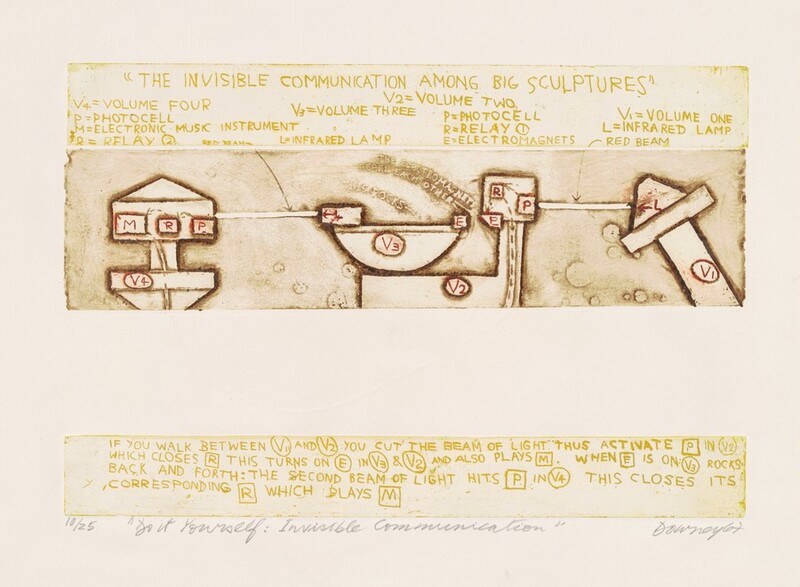 "THE INVISIBLE COMMUNICATION AMONG BIG SCULPTURES"
V4=VOLUME FOUR
V3=VOLUME THREE
V2=VOLUME TWO
V1=VOLUME ONE
P=PHOTOCELL
P=PHOTOCELL
M=ELECTRONIC MUSIC INSTRUMENT
R=RELAY ①
L=INFRARED LAMP
R=RELAY ②
RED BEAM
L=INFRARED LAMP
E=ELECTROMAGNETS
RED BEAM
M R P
L
E
E
R
P
L
V4
V3
V2
V1
IF YOU WALK BETWEEN V1 AND V2 YOU CUT THE BEAM OF LIGHT THUS ACTIVATE P IN V2
WHICH CLOSES R THIS TURNS ON E IN V3 & V2 AND ALSO PLAYS M. WHEN E IS ON V3 ROCKS
BACK AND FORTH: THE SECOND BEAM OF LIGHT HITS P IN V4 THIS CLOSES ITS
CORRESPONDING R WHICH PLAYS M
10/25 "Do it Yourself: Invisible Communication" Downey 67